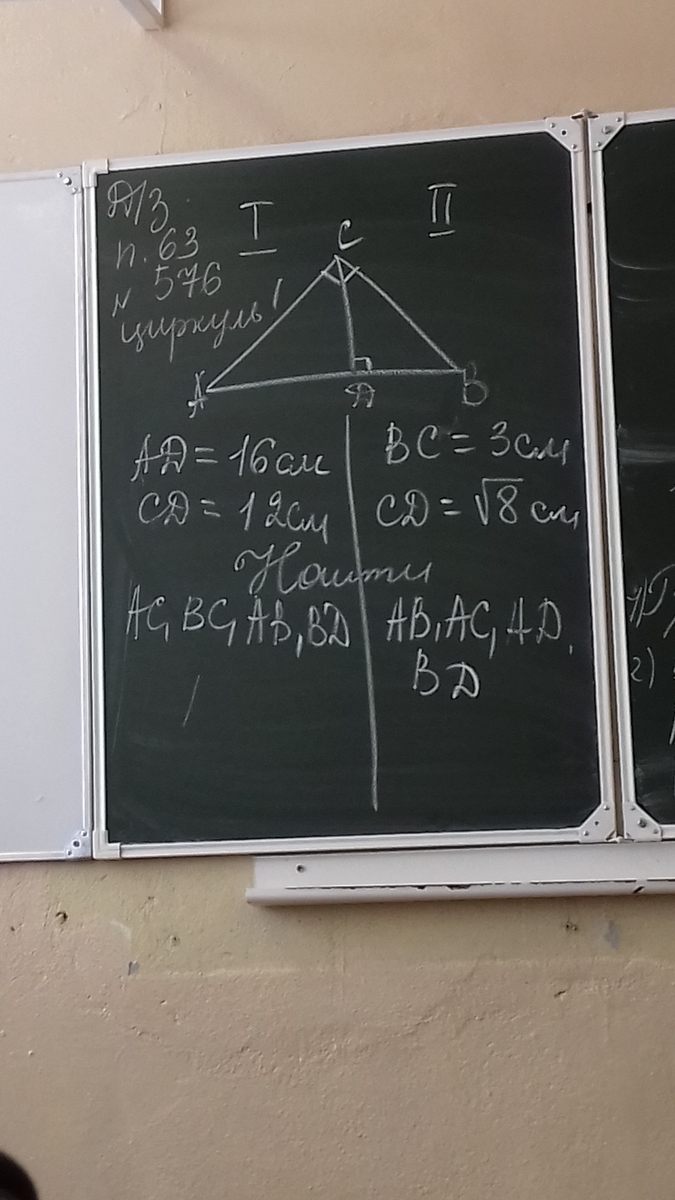 Д/з.
п. 63
№ 576
циркуль!
I
II
C
A
D
B
AD = 16 см
CD = 12 см
BC = 3 см
CD = √8 см
Найти
AC, BC, AB, BD
AB, AC, AD,
BD
2)